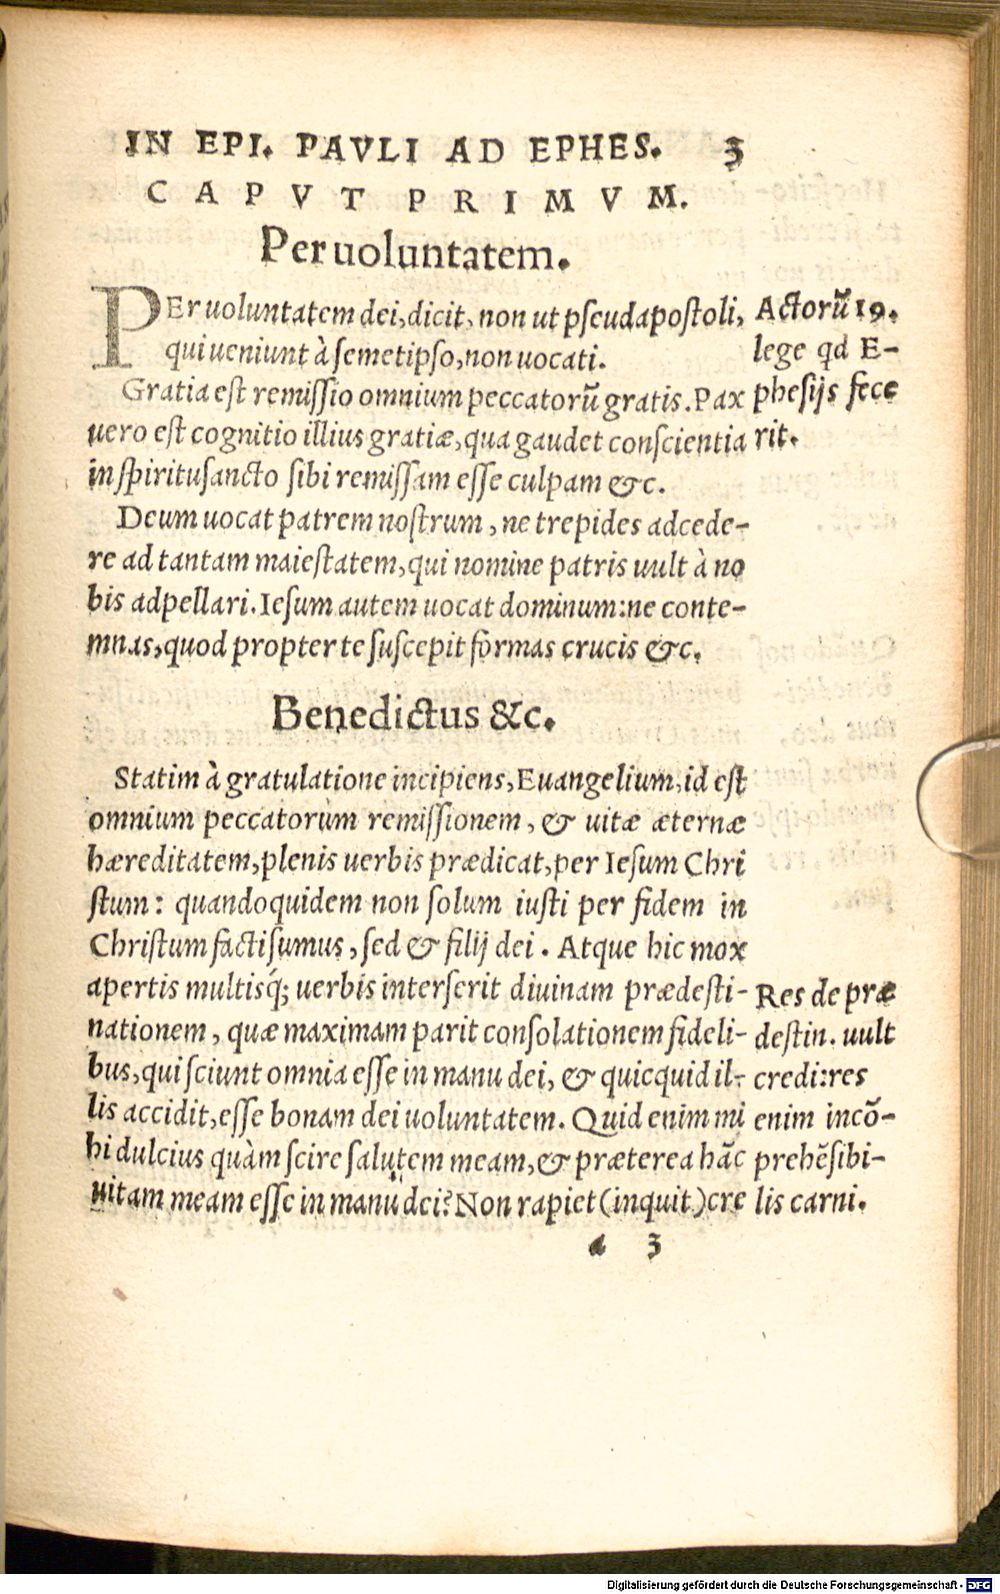 IN EPI. PAVLI AD EPHES. 3
CAPVT PRIMVM.
Per uoluntatem.
PEr uoluntatem dei, dicit, non ut pseudapostoli,
qui ueniunt à semetipso, non uocati.
Gratia est remissio omnium peccatorũ gratis. Pax
uero est cognitio illius gratiæ, qua gaudet conscientia
in spiritusancto sibi remissam esse culpam &c.
Deum uocat patrem nostrum, ne trepides adcede-
re ad tantam maiestatem, qui nomine patris uult à no
bis adpellari. Iesum autem uocat dominum: ne conte-
mnas, quod propter te suscepit formas crucis &c.
Actorũ 19.
lege qd E-
phesijs fece
rit.
Benedictus &c.
Statim à gratulatione incipiens, Euangelium, id est
omnium peccatorum remissionem, & uitæ æternæ
hæreditatem, plenis uerbis prædicat, per Iesum Chri
stum: quandoquidem non solum iusti per fidem in
Christum facti sumus, sed & filij dei. Atque hic mox
apertis multisq́; uerbis interserit diuinam prædesti-
nationem, quæ maximam parit consolationem fideli-
bus, qui sciunt omnia esse in manu dei, & quicquid il-
lis accidit, esse bonam dei uoluntatem. Quid enim mi
hi dulcius quàm scire salutem meam, & præterea hãc
uitam meam esse in manu dei? Non rapiet (inquit) cre
Res de præ
destin. uult
credi: res
enim incõ-
prehẽsibi-
lis carni.
a 3
Digitalisierung gefördert durch die Deutsche Forschungsgemeinschaft - DFG